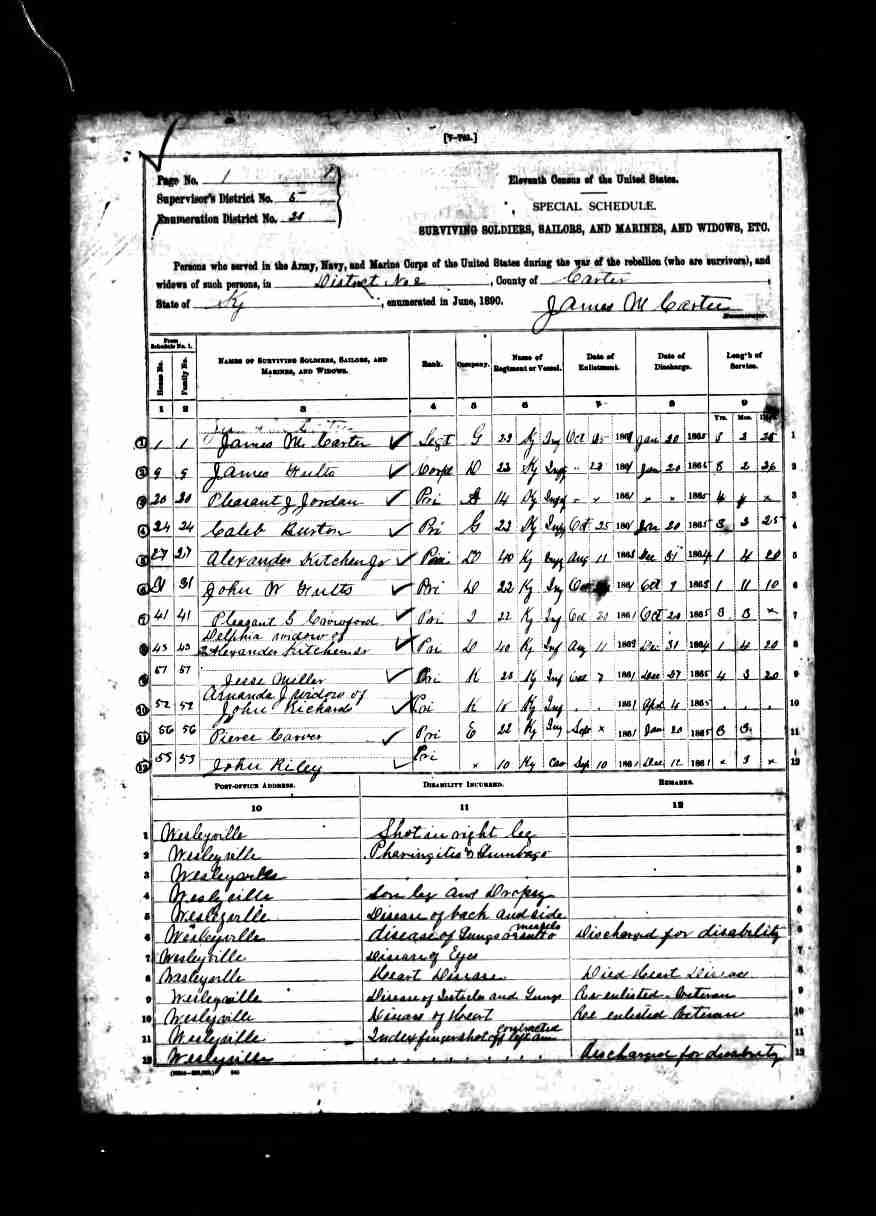 [7-761.]
Page No. 1
Supervisor's District No. 5
Enumeration District No. 20
Eleventh Census of the United States.
SPECIAL SCHEDULE.
SURVIVING SOLDIERS, SAILORS, AND MARINES, AND WIDOWS, ETC.
Persons who served in the Army, Navy, and Marine Corps of the United States during the war of the rebellion (who are survivors), and
widows of such persons, in District No 2, County of Carter,
State of Ky, enumerated in June, 1890. James M Carter
Enumerator.
From Schedule No. 1.
House No. Family No. NAMES OF SURVIVING SOLDIERS, SAILORS, AND MARINES, AND WIDOWS. Rank. Company. Name of Regiment or Vessel. Date of Enlistment. Date of Discharge. Length of Service.
1 2 3 4 5 6 7 8 9
Yrs. Mos. Days.
1 1 1 James M. Carter Segt G 22 Ky Inf Oct 1861 Jan 20 1865 3 2 25 1
2 9 9 James Fults Corpl D 22 Ky Inf " 1861 Jan 20 1865 3 2 26 2
3 20 20 Pleasant J Jordan Pri 14 Ky Inf 1861 1865 3
4 24 24 Caleb Burton Pri G 22 Ky Inf Oct 25 1861 Jan 20 1865 3 2 25 4
5 27 27 Alexander Kitchen Jr Pri D 40 Ky Inf Aug 11 1863 Dec 31 1864 1 4 20 5
6 31 31 John W Fults Pri D 22 Ky Inf 1861 Oct 9 1863 1 11 10 6
7 41 41 Pleasant G Crawford Pri I 22 Ky Inf Oct 20 1861 Oct 20 1865 3 3 x 7
8 43 43 Delphia widow of
Alexander Kitchen Sr Pri D 40 Ky Inf Aug 11 1863 Dec 31 1864 1 4 20 8
9 51 51 Jesse Miller Pri K Ky Inf 7 1861 Dec 27 1865 4 3 20 9
10 52 52 Amanda J widow of
John Richards Pri K Ky Inf 1861 Apr 4 1865 10
11 56 56 Pierce Carver Pri E 22 Ky Inf Sept x 1861 Jan 20 1865 3 3 11
12 59 59 John Riley Pri x 10 Ky Cav Sep 10 1861 Dec 12 1861 x 3 x 12
POST-OFFICE ADDRESS. DISABILITY INCURRED. REMARKS.
10 11 12
1 Wesleyville Shot in right leg 1
2 Wesleyville Pharingitis & Lumbago 2
3 Wesleyville 3
4 Wesleyville Sore leg and Dropsy 4
5 Wesleyville Disease of back and side 5
6 Wesleyville disease of Lungs measels Discharged for disability 6
7 Wesleyville Disease of Eyes 7
8 Wesleyville Heart Disease Died Heart Disease 8
9 Wesleyville Disease of Testicles and Lungs Re enlisted Veteran 9
10 Wesleyville Disease of Heart Re enlisted Veteran 10
11 Wesleyville Index finger shot off contracted left arm 11
12 Wesleyville Discharged for disability 12